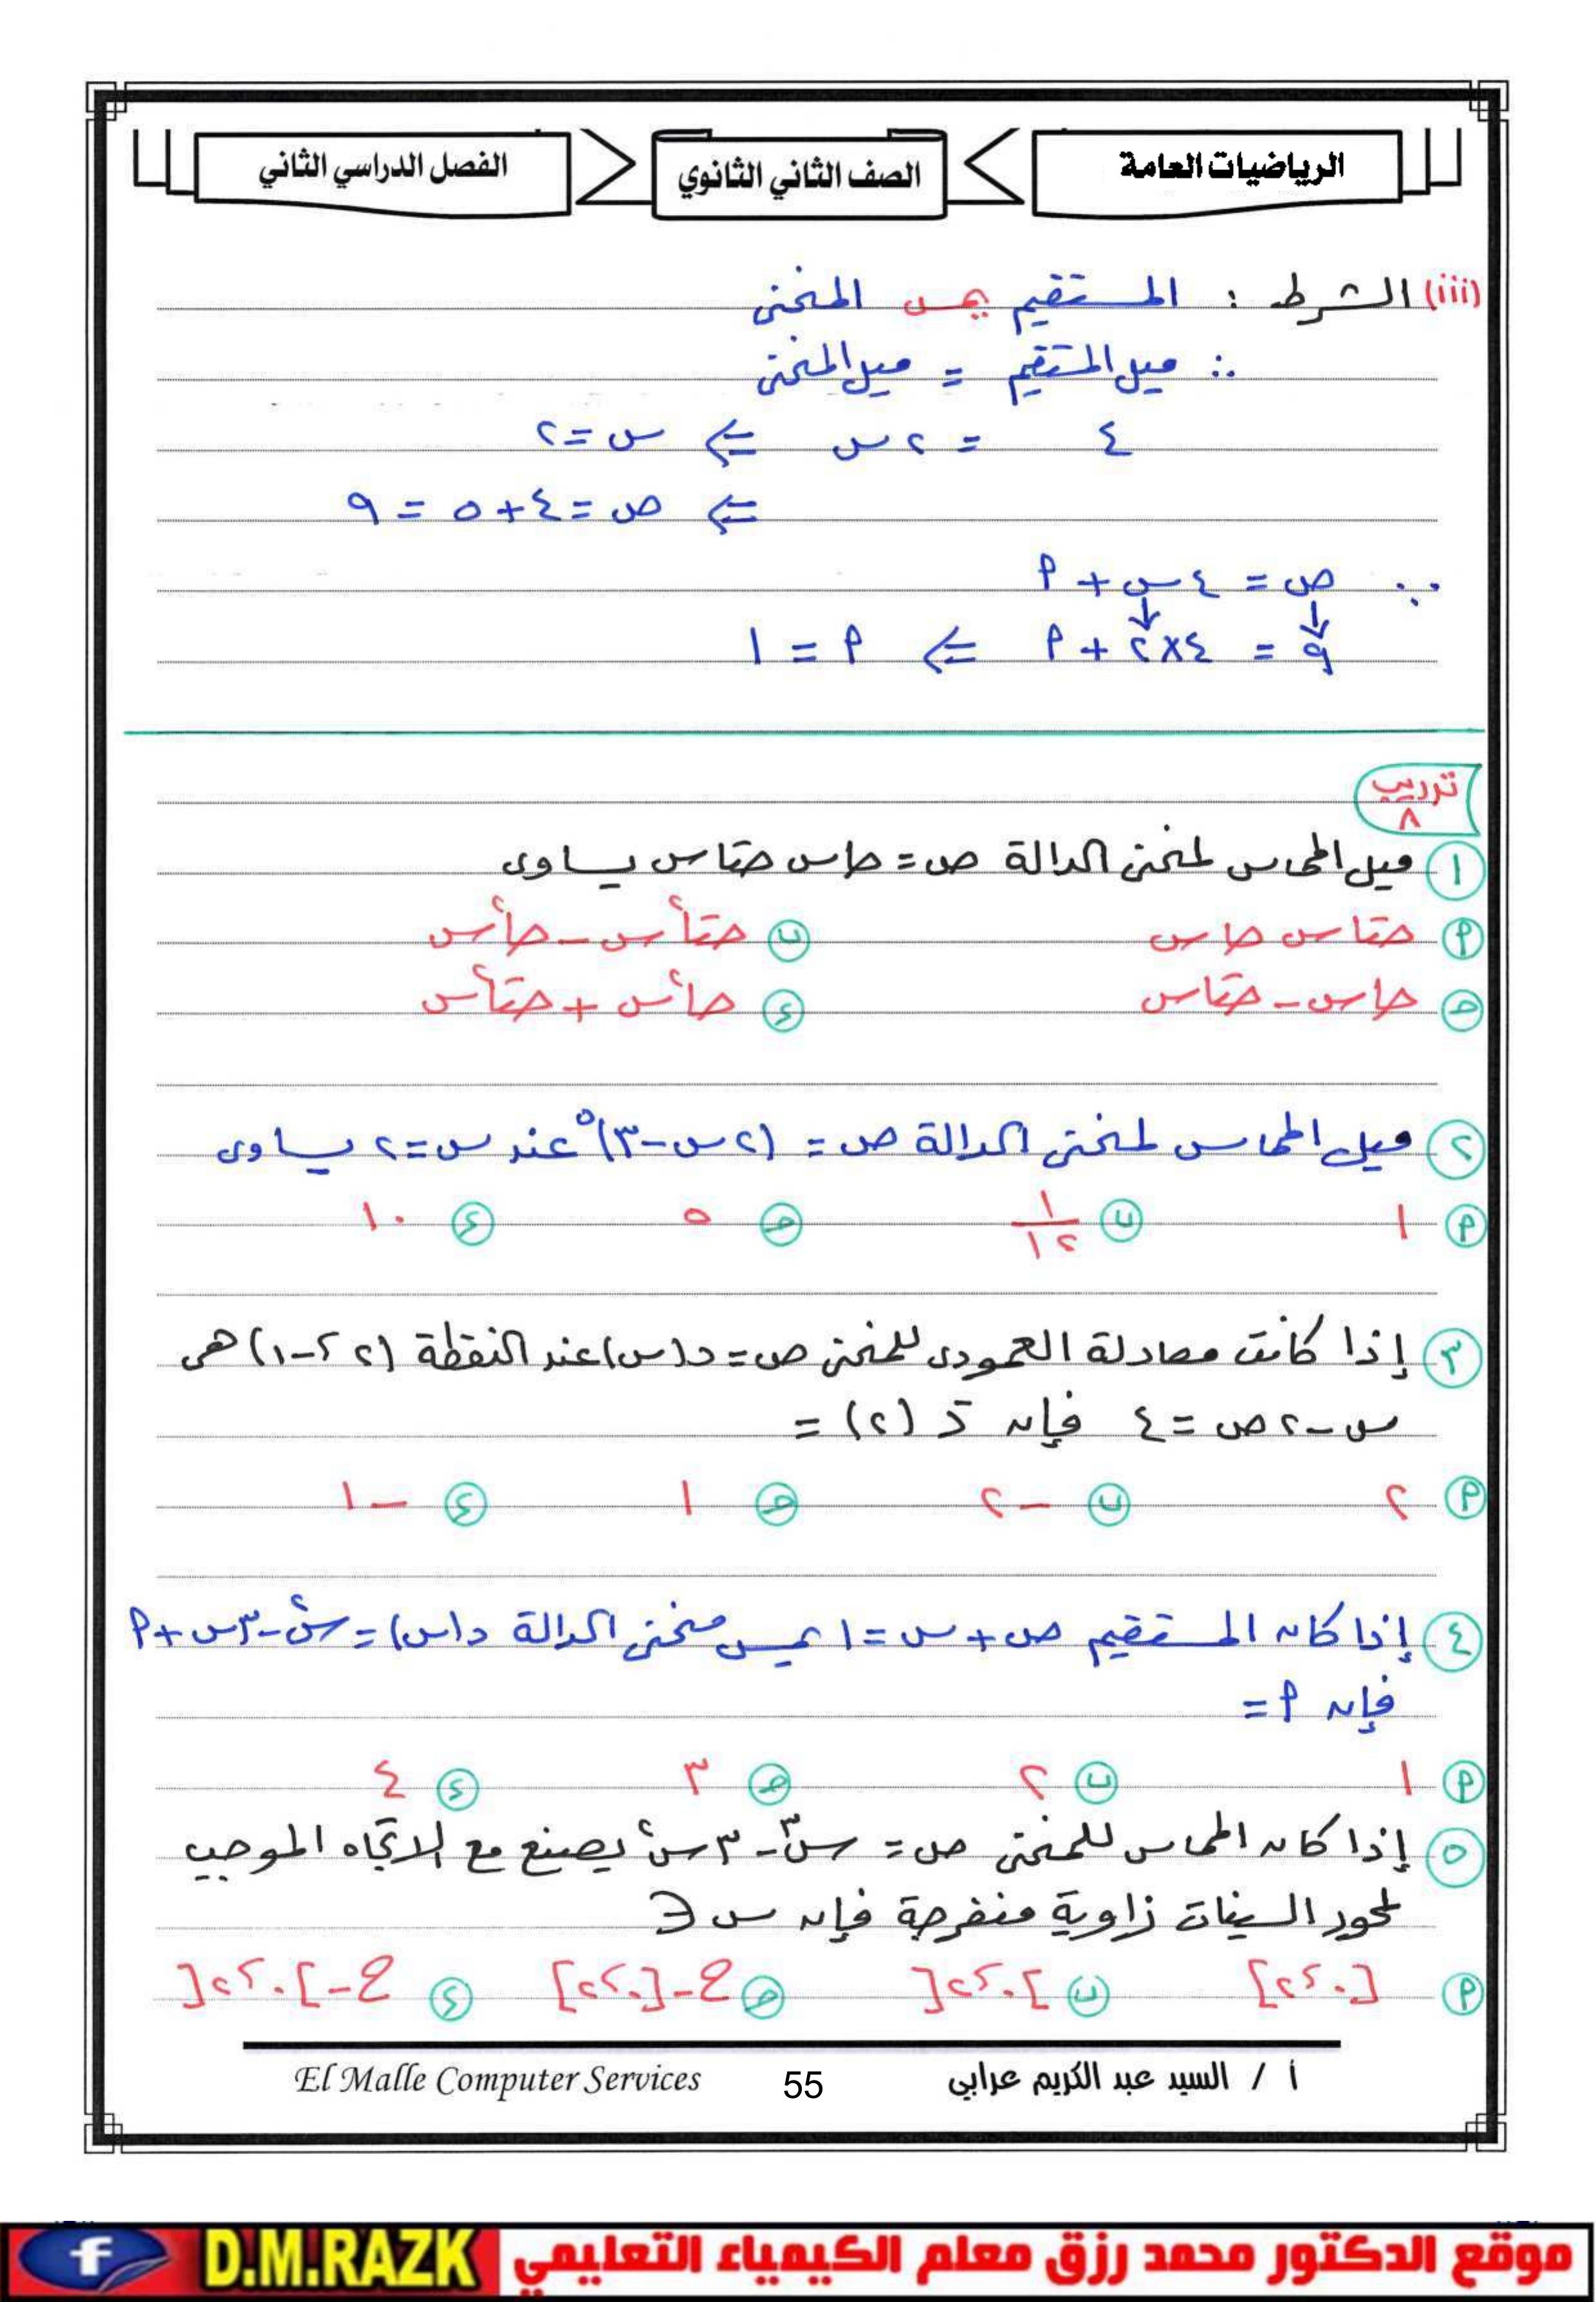 الرياضيات العامة
الصف الثاني الثانوي
الفصل الدراسي الثاني
(iii) الشرط : المستقيم يمس المنحنى
∴ ميل المستقيم = ميل المنحنى
٤ = ٢س ⇐ س = ٢
⇐ ص = ٤ + ٥ = ٩
∵ ص = ٤س + ٩
٩ = ٤×٢ + ٩ ⇐ ٩ = ١
تدريب ٨
١ ميل المماس لمنحنى الدالة ص = حاس حتاس يساوى
٩ حتاس حاس ب حتا٢س - حا٢س
ح حاس - حتاس ء حا٢س + حتا٢س
٢ ميل المماس لمنحنى الدالة ص = (٢س-٣)^٥ عند س=٢ يساوى
٩ ١ ب ١/١٢ ح ٥ ء ١٠
٣ إذا كانت معادلة العمودى للمنحنى ص = د(س) عند النقطة (٢ ، -١) هى
س - ٢ص = ٤ فإن دَ (٢) =
٩ ٢ ب -٢ ح ١ ء -١
٤ إذا كان المستقيم ص + س = ١ يمس منحنى الدالة د(س) = س٢ - ٣س + ٩
فإن ٩ =
٩ ١ ب ٢ ح ٣ ء ٤
٥ إذا كان المماس للمنحنى ص = س٣ - ٣س٢ يصنع مع الاتجاه الموجب
لمحور السينات زاوية منفرجة فإن س ∈
٩ [٠ ، ٢] ب ]٠ ، ٢[ ح ح - [٠ ، ٢] ء ح - ]٠ ، ٢[
أ / السيد عبد الكريم عرابي
55
El Malle Computer Services
موقع الدكتور محمد رزق معلم الكيمياء التعليمي
D.M.RAZK
f